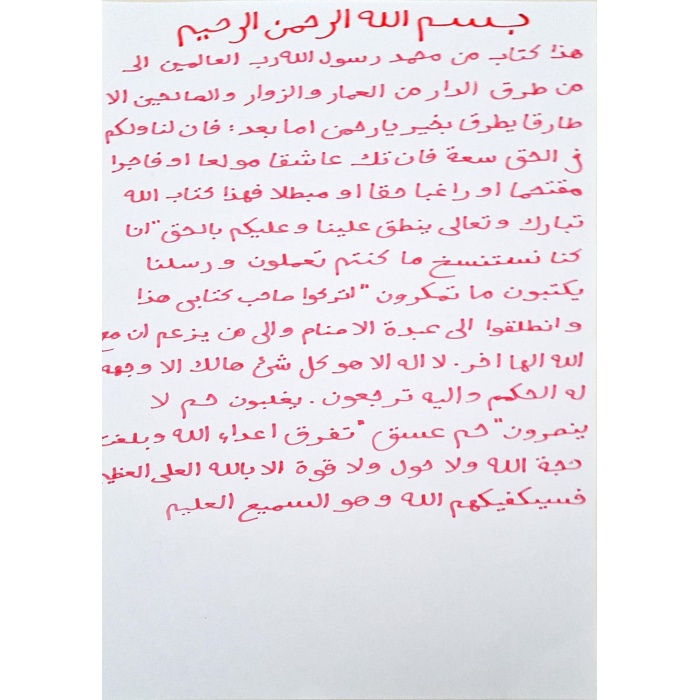 بسم الله الرحمن الرحيم
هذا كتاب من محمد رسول الله رب العالمين الى
من طرق الدار من العمار والزوار والصالحين الا
طارقا يطرق بخير يارحمن اما بعد : فان لناولكم
في الحق سعة فان تك عاشقا مولعا او فاجرا
مقتحما او راغبا حقا او مبطلا فهذا كتاب الله
تبارك وتعالى ينطق علينا وعليكم بالحق "انا
كنا نستنسخ ما كنتم تعملون ورسلنا
يكتبون ما تمكرون "اتركوا صاحب كتابي هذا
وانطلقوا الى عبدة الاصنام والى من يزعم ان مع
الله الها اخر. لا اله الا هو كل شئ هالك الا وجهه
له الحكم واليه ترجعون. يغلبون حم لا
ينصرون" حم عسق "تفرق اعداء الله وبلغت
حجة الله ولا حول ولا قوة الا بالله العلى العظيم
فسيكفيكهم الله وهو السميع العليم